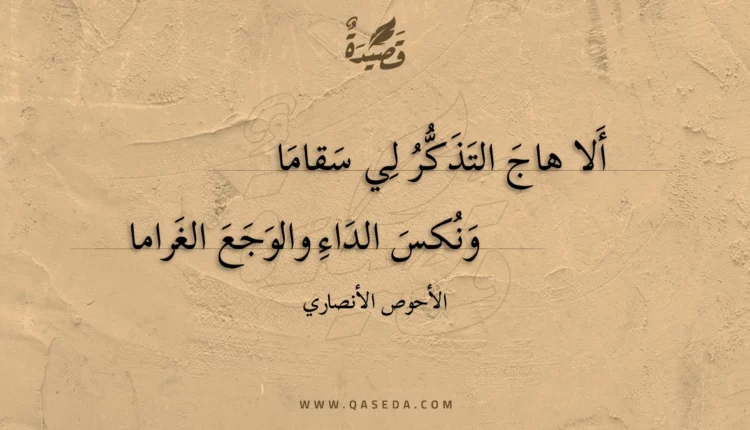 قَصِيدَةٌ
أَلا هاجَ التَذَكُّرُ لِي سَقامَا
وَنُكسَ الدَاءِ والوَجَعَ الغَراما
الأحوص الأنصاري
WWW.QASEDA.COM